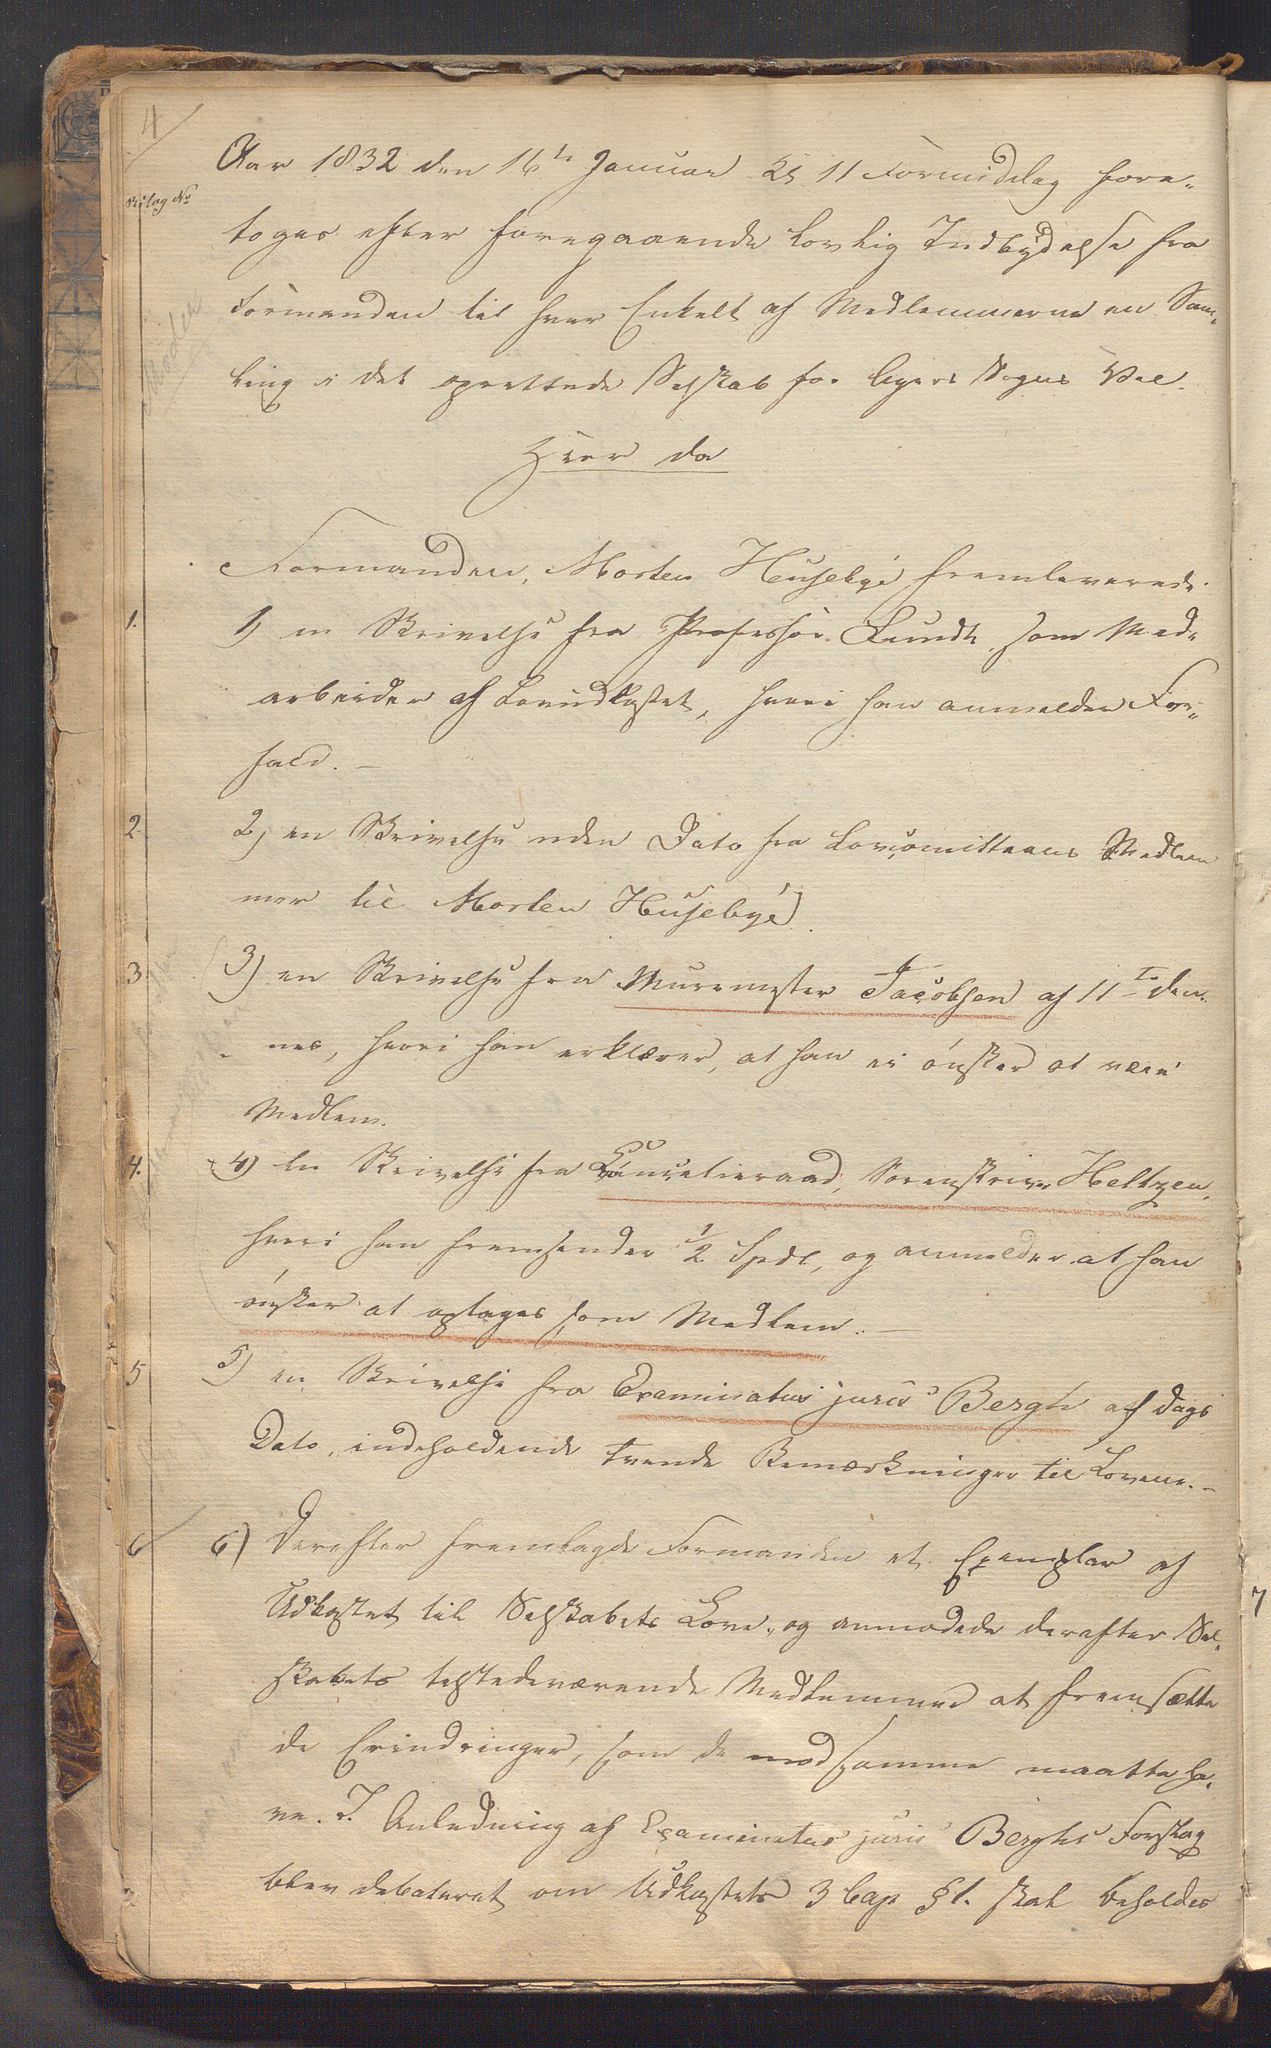 4
Bilag No
Aar 1832 den 16de Januar Kl 11 Formiddag fore-
toges efter foregaaende lovlig Indbydelse fra
Formanden til hver Enkelt af Medlemmerne en Sam-
ling i det oprettede Selskab for Byens Sogns Vel.
Hvor da
Formanden, Morten Husebye fremleverede.
1. 1) en Skrivelse fra Professor Lundh, som Med-
arbeider af Lovudkastet, hvori han anmelder For-
fald. —
2. 2) en Skrivelse uden Dato fra Lovcomitteens Medlem
mer til Morten Husebye
3. 3) en Skrivelse fra Muurmester Jacobsen af 11te den-
nes, hvori han erklærer, at han ei ønsker at være
Medlem.
4. 4) en Skrivelse fra Cancelieraad, Sorenskriver Heltzen,
hvori han fremsender 1/2 Spdl, og anmelder at han
ønsker at optages som Medlem. —
5 5) en Skrivelse fra Examinatus juris Bergh af Dags
Dato, indeholdende tvende Bemærkninger til Lovene. —
6 6) Derefter fremlagde Formanden et Exemplar af
Udkastet til Selskabets Love, og anmodede derefter Sel-
skabets tilstedeværende Medlemmer at fremsætte
de Erindringer, som de mod samme maatte ha-
ve. I Anledning af Examinatus juris Berghs Forslag
blev debateret om Udkastets 3 Cap § 1. skal beholdes